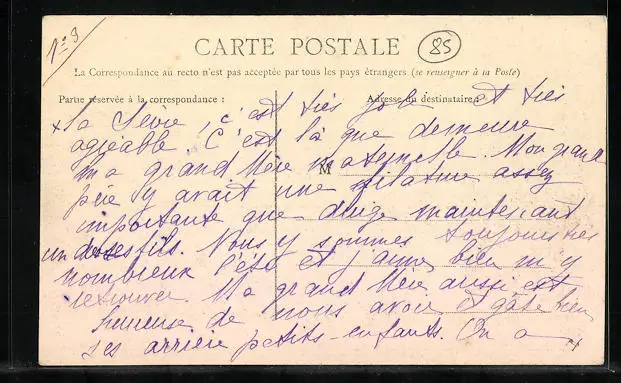 n° 9
CARTE POSTALE
85
La Correspondance au recto n'est pas acceptée par tous les pays étrangers (se renseigner à la Poste)
Partie réservée à la correspondance :
Adresse du destinataire :
M
La Sèvre, c'est très joli et très
agréable. C'est là que demeure
ma grand Mère maternelle. Mon grand
père y avait une filature assez
importante que dirige maintenant
un de ses fils. Nous y sommes toujours très
nombreux l'été et j'aime bien m'y
retrouver. Ma grand Mère aussi est
heureuse de nous avoir et gâte bien
ses arrière petits-enfants. On a